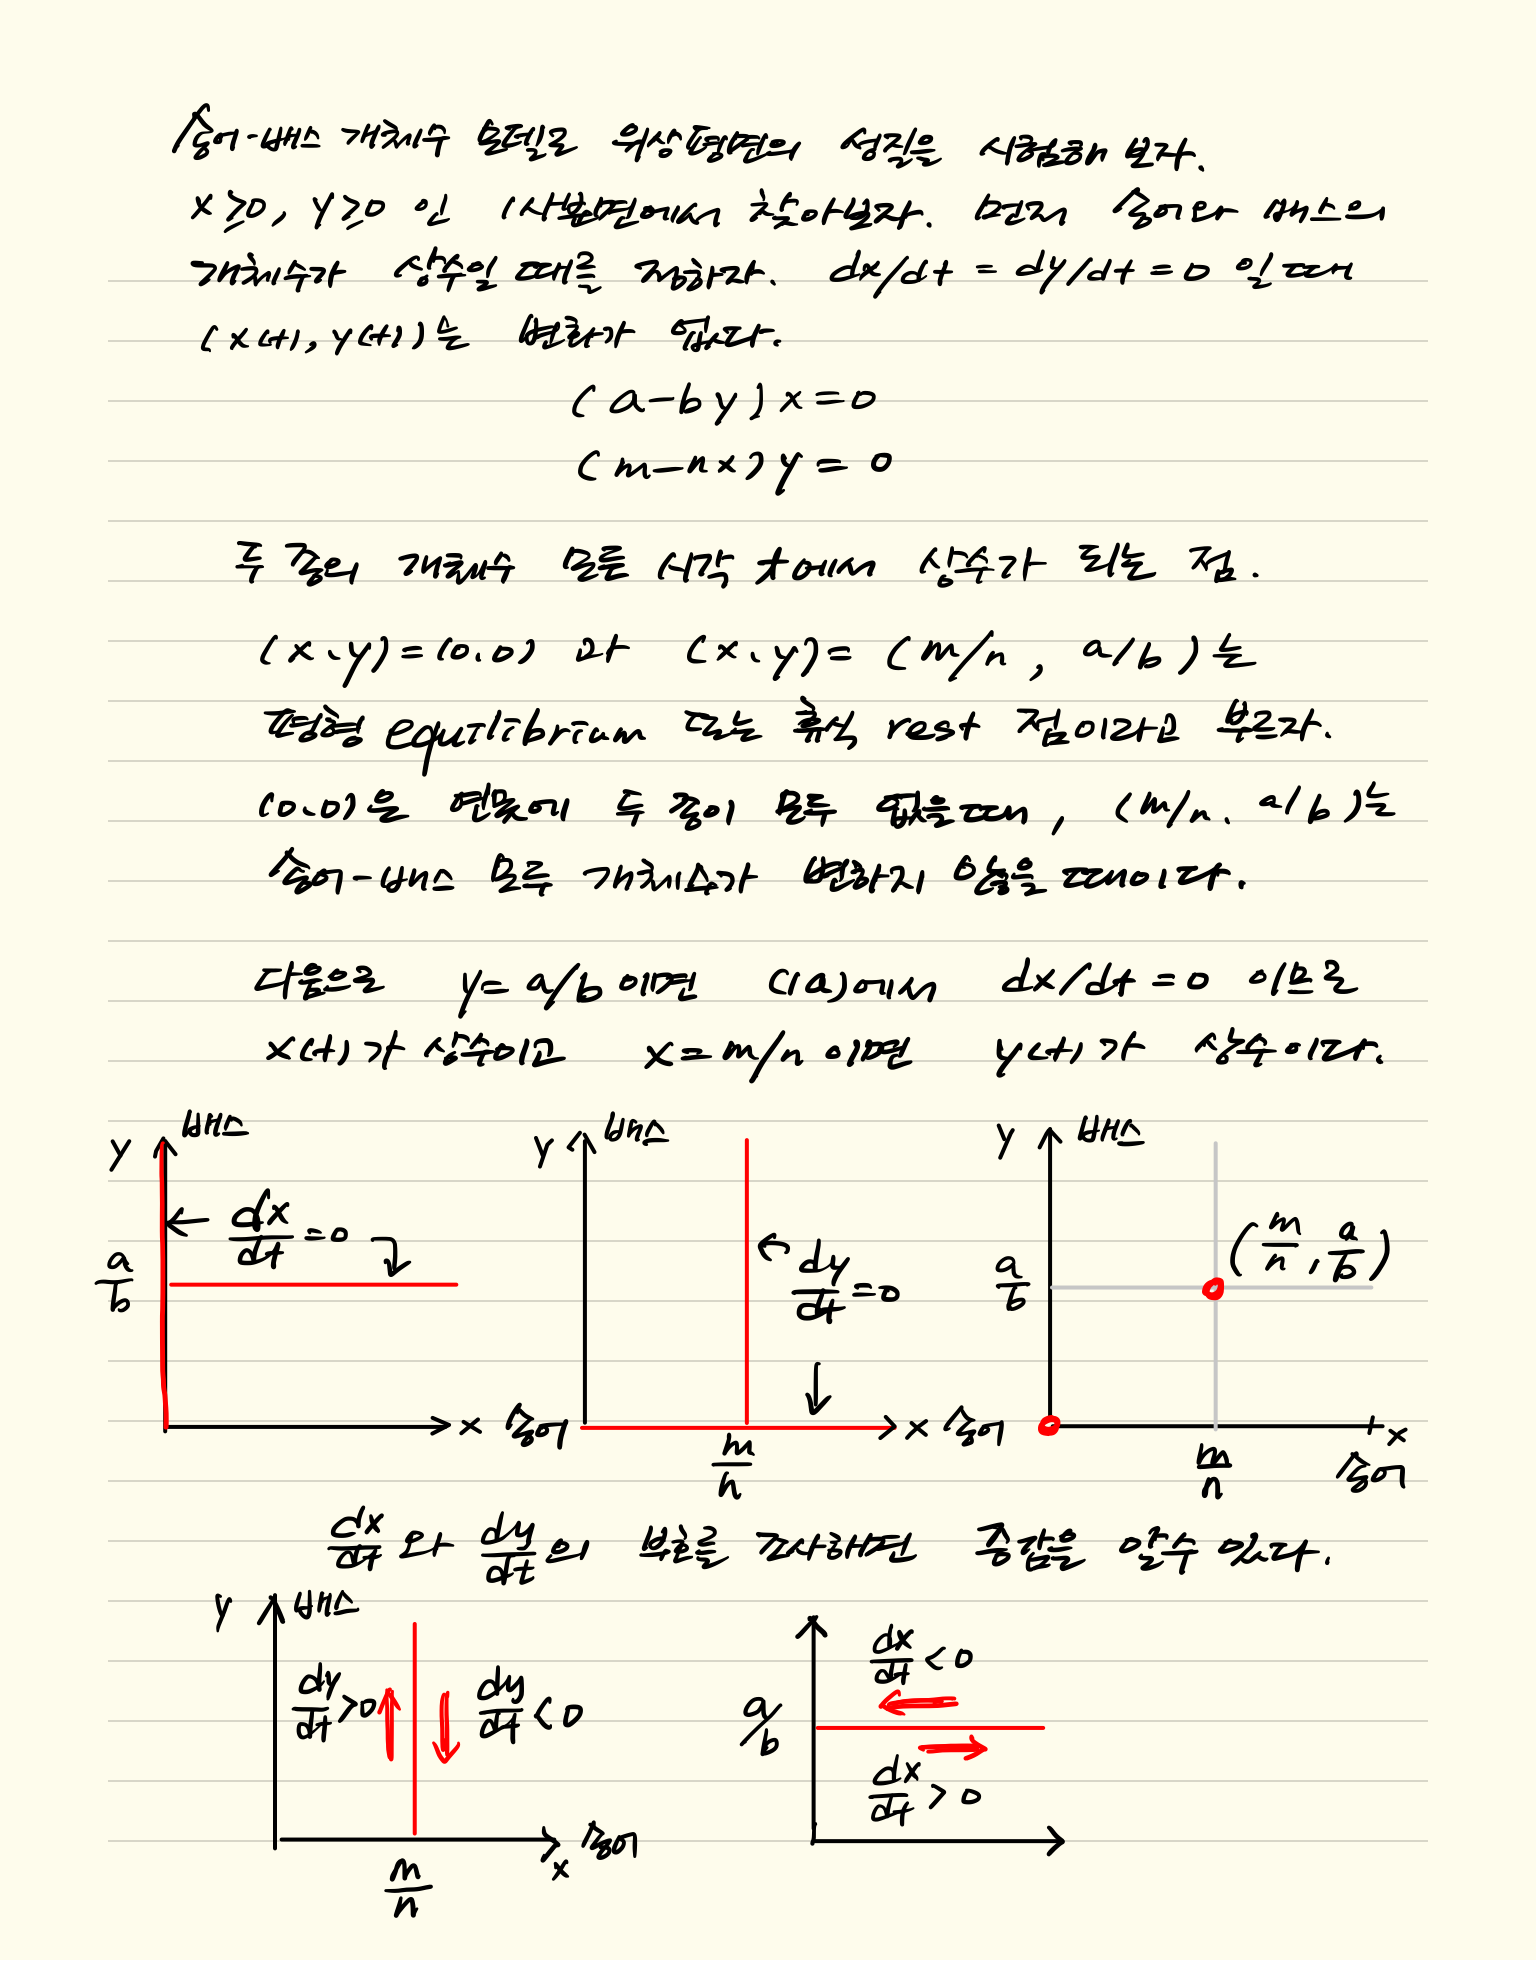 송어-배스 개체수 모델로 위상평면의 성질을 시험해 보자.
x≥0, y≥0 인 1사분면에서 찾아보자. 먼저 송어와 배스의
개체수가 상수일 때를 정하자. dx/dt = dy/dt = 0 일 때
(x(t), y(t))는 변화가 없다.
(a-by)x=0
(m-nx)y=0
두 종의 개체수 모든 시각 t에서 상수가 되는 점.
(x,y)=(0,0) 과 (x,y)=(m/n, a/b)는
평형 equilibrium 또는 휴식 rest 점이라고 부르자.
(0,0)은 연못에 두 종이 모두 없을때, (m/n, a/b)는
송어-배스 모두 개체수가 변하지 않을 때이다.
다음으로 y=a/b 이면 (1a)에서 dx/dt=0 이므로
x(t)가 상수이고 x=m/n 이면 y(t)가 상수이다.
y 배스
dx/dt=0
a/b
x 송어
y 배스
dy/dt=0
m/n
x 송어
y 배스
(m/n, a/b)
a/b
m/n
x
송어
dx/dt 와 dy/dt의 부호를 조사해면 증감을 알수 있다.
y 배스
dy/dt>0
dy/dt<0
m/n
x 송어
dx/dt<0
a/b
dx/dt>0